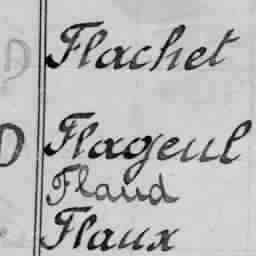 D Flachet
D Flageul
Flaud
Flaux